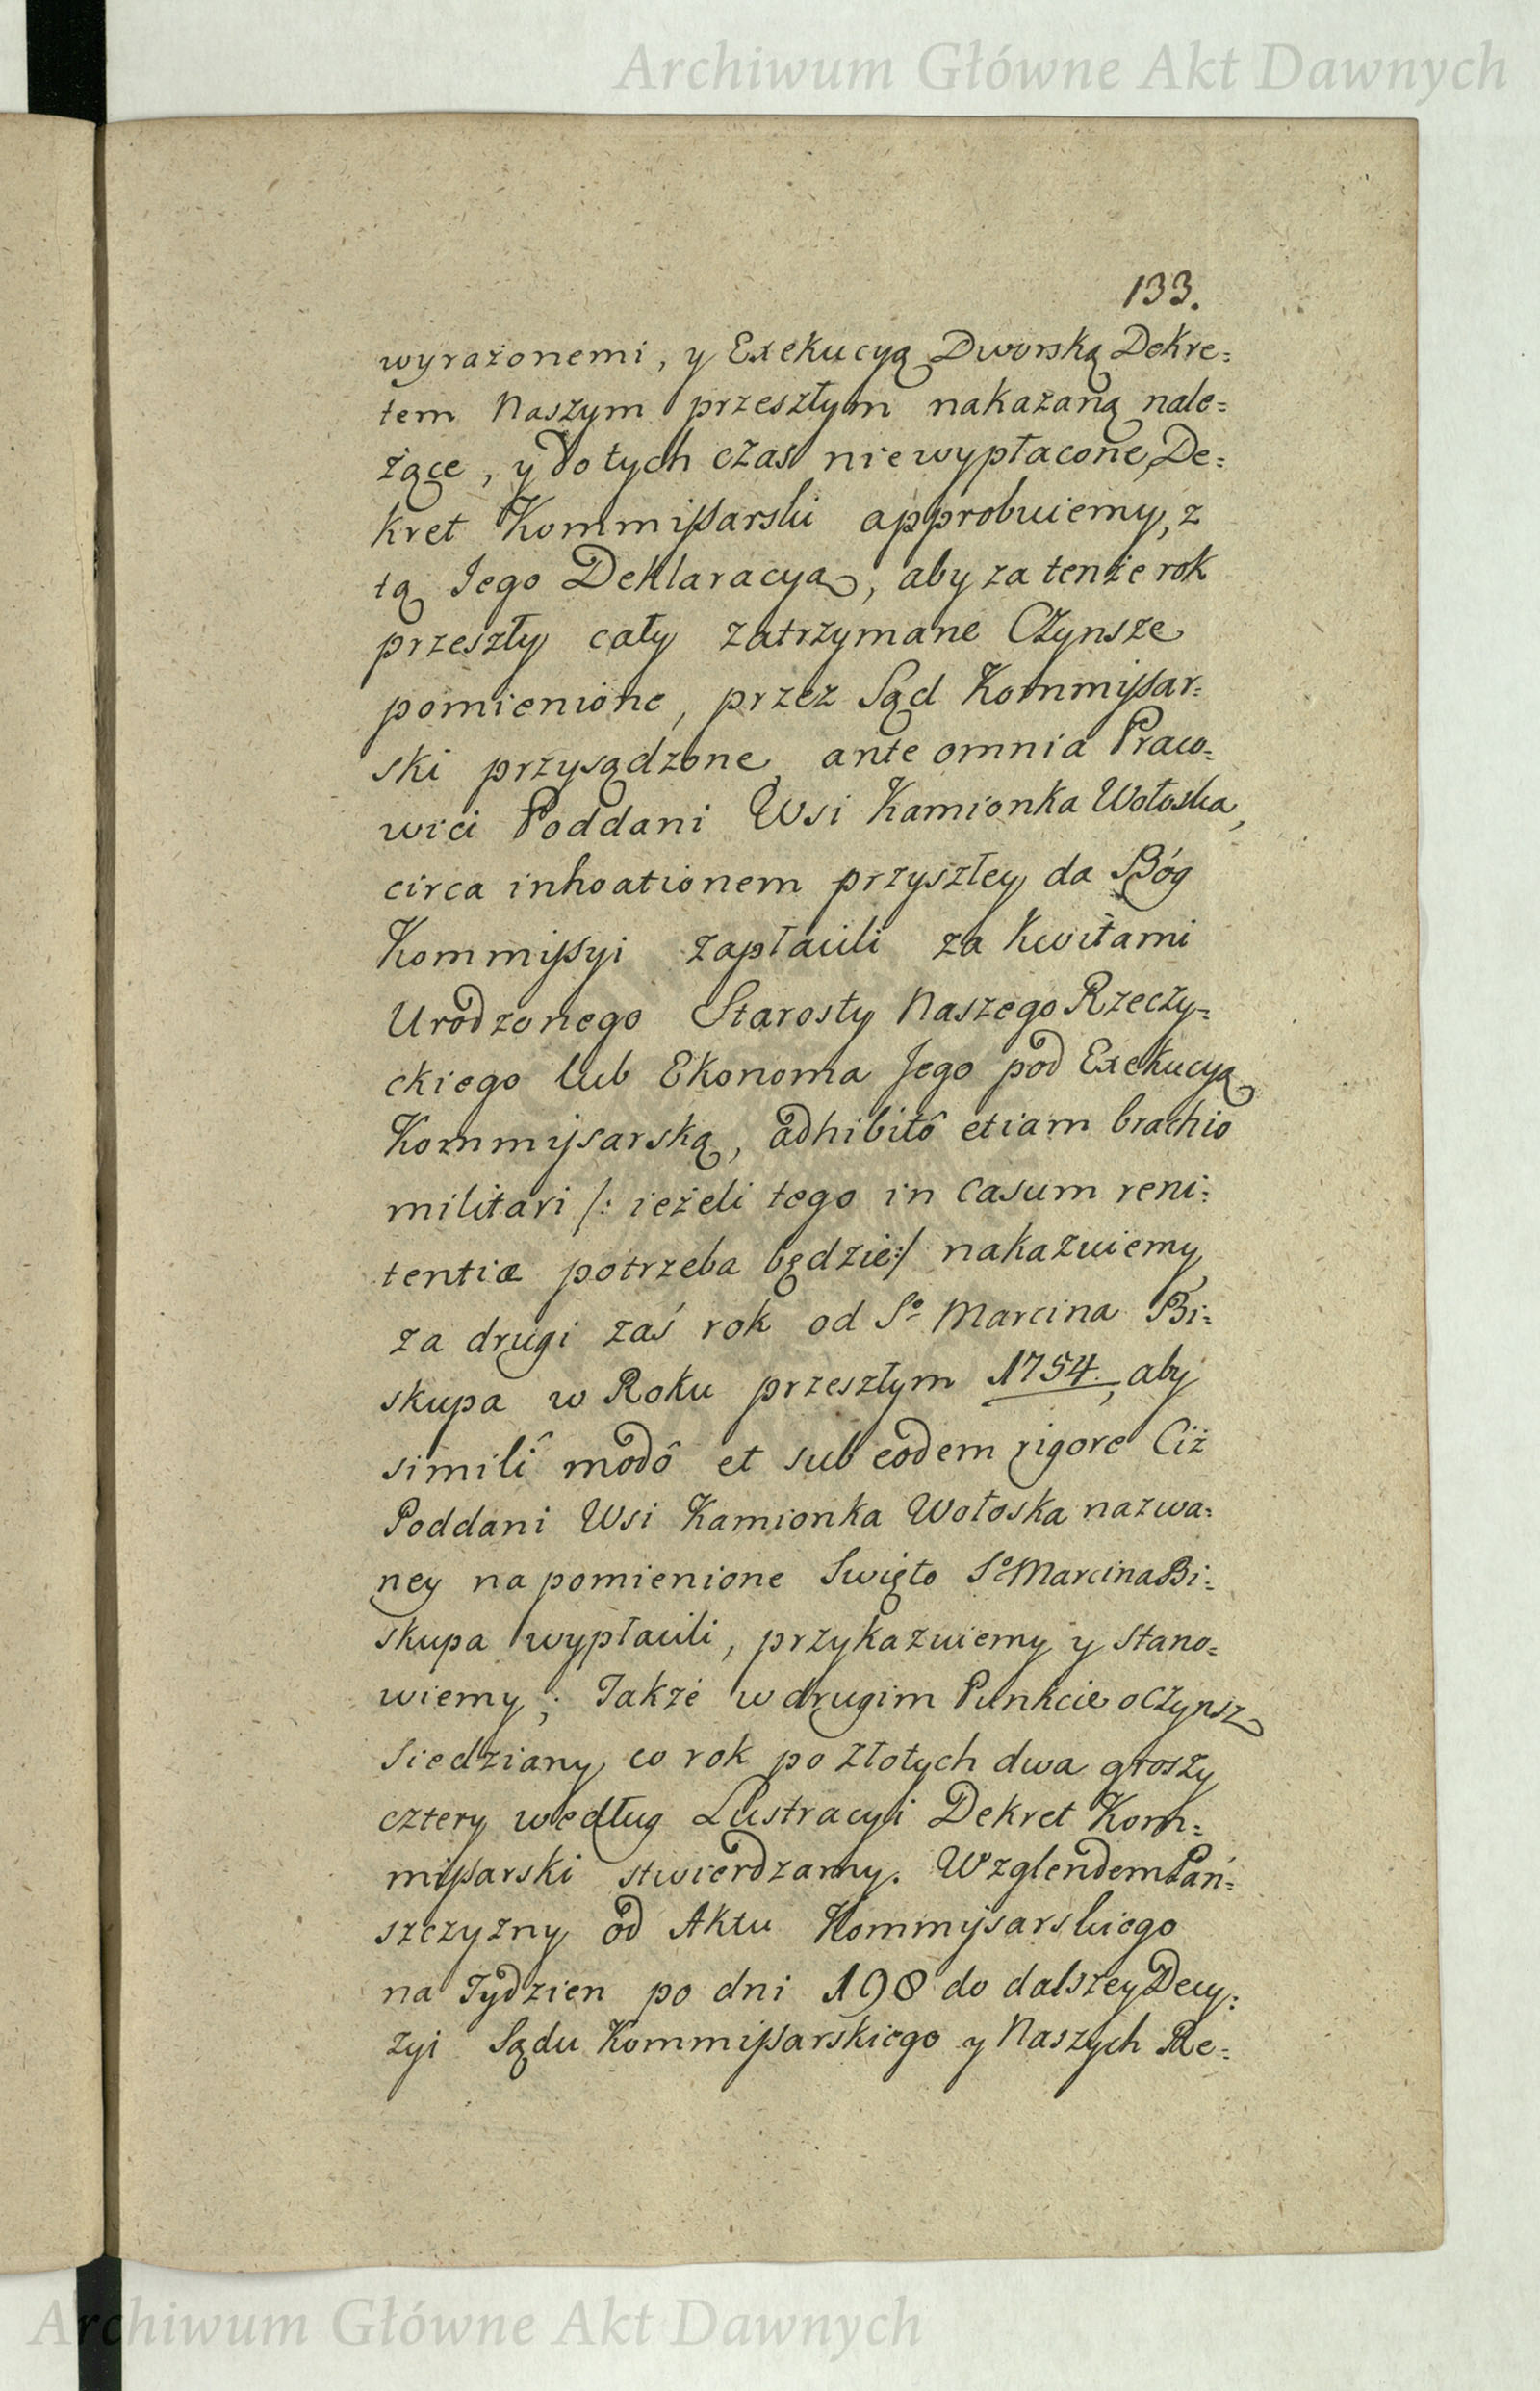 Archiwum Główne Akt Dawnych
133.
wyrażonemi, y Exekucyą Dworską Dekre=
tem Naszym przeszłym nakazaną nale=
żące, y do tych czas niewypłacone, De=
kret Kommissarski approbuiemy, z
tą Jego Deklaracyą, aby za tenże rok
przeszły cały zatrzymane Czynsze
pomienione, przez Sąd Kommissar=
ski przysądzone, ante omnia Praco=
wici Poddani Wsi Kamionka Wołoska,
circa inhoationem przyszłey da Bóg
Kommissyi zapłacili za Kwitami
Urodzonego Starosty Naszego Rzeczy=
ckiego lub Ekonoma Jego pod Exekucyą
Kommisarską, adhibitô etiam brachio
militari /: ieżeli tego in casum reni=
tentiæ potrzeba będzie :/ nakazuiemy,
za drugi zaś rok od Sº Marcina Bi=
skupa w Roku przeszłym 1754., aby
similî modô et sub eodem rigore Ciż
Poddani Wsi Kamionka Wołoska nazwa=
ney na pomienione Swięto Sº Marcina Bi=
skupa wypłacili, przykazuiemy y stano=
wiemy; Także w drugim Punkcie o Czynsz
Siedziany, co rok po złotych dwa groszy
cztery według Lustracyi Dekret Kom=
missarski stwierdzamy. Wzglendem Pań=
szczyzny od Aktu Kommisarskiego
na Tydzien po dni 198 do dalszey Decy=
zyi Sądu Kommissarskiego y Naszych Re=
Archiwum Główne Akt Dawnych